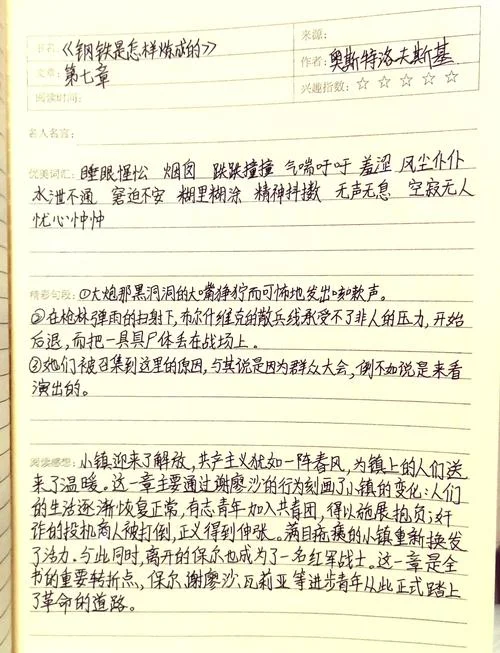 来源:
书名:《钢铁是怎样炼成的》
作者: 奥斯特洛夫斯基
文章: 第七章
兴趣指数: ☆ ☆ ☆ ☆ ☆
阅读时间:
名人名言:
优美词汇: 睡眼惺忪 烟囱 跌跌撞撞 气喘吁吁 羞涩 风尘仆仆
水泄不通 窘迫不安 糊里糊涂 精神抖擞 无声无息 空寂无人
忧心忡忡
精彩句段: ①大炮那黑洞洞的大嘴狰狞而可怖地发出咳欶声。
②在枪林弹雨的扫射下,布尔什维克的散兵线承受不了非人的压力,开始
后退,而把一具具尸体丢在战场上。
③她们被召集到这里的原因,与其说是因为群众大会,倒不如说是来看
演出的。
阅读感想: 小镇迎来了解放,共产主义犹如一阵春风,为镇上的人们送
来了温暖。这一章主要通过谢廖沙的行为刻画了小镇的变化:人们
的生活逐渐恢复正常,有志青年加入共青团,得以施展抱负;奸
诈的投机商人被打倒,正义得到伸张。满目疮痍的小镇重新焕发
了活力。与此同时,离开的保尔也成为了一名红军战士。这一章是全
书的重要转折点,保尔、谢廖沙、瓦莉亚等进步青年从此正式踏上
了革命的道路。